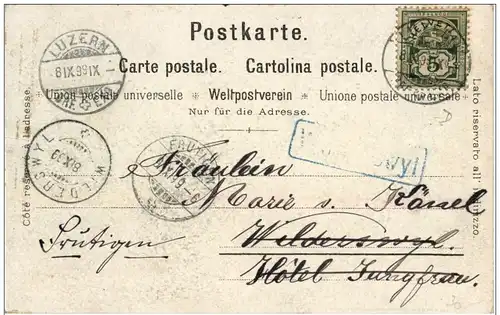 Postkarte.
Carte postale. Cartolina postale.
Union postale universelle Weltpostverein Unione postale universale
Nur für die Adresse.
Côté réservé à l'adresse.
Lato riservato all' indirizzo.
LUZERN
8 IX 99 IX
BRF. EXP.
LUZERN
5
WILDERSWYL
8 IX 99
FRUTI
wyl
Fräulein
Marie v. Känel
Wilderswyl.
Hôtel Jungfrau.
Frutigen